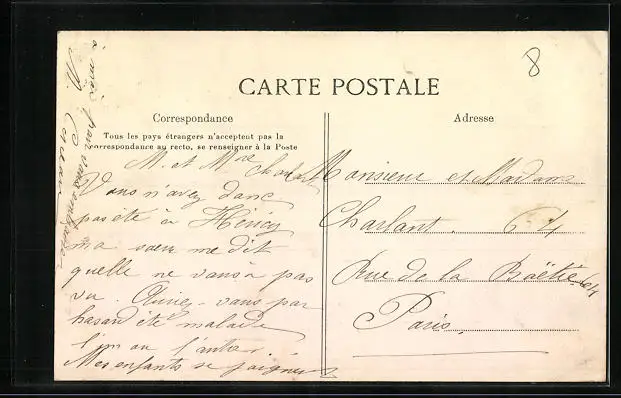 8
CARTE POSTALE
Correspondance
Tous les pays étrangers n'acceptent pas la
correspondance au recto, se renseigner à la Poste
Adresse
M. et Mme Charlant
Vous n'avez donc
pas été à Héricy
ma sœur me dit
quelle ne vous a pas
vu. Auriez-vous par
hasard été malade
l'un ou l'autre.
Mes enfants se joignent
à moi pour vous
Monsieur et Madame
Charlant. 64
Rue de la Boëtie 64
Paris